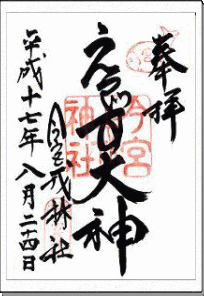 奉拝
えびす大神
今宮
神社
今宮戎神社
平成十七年八月二十四日